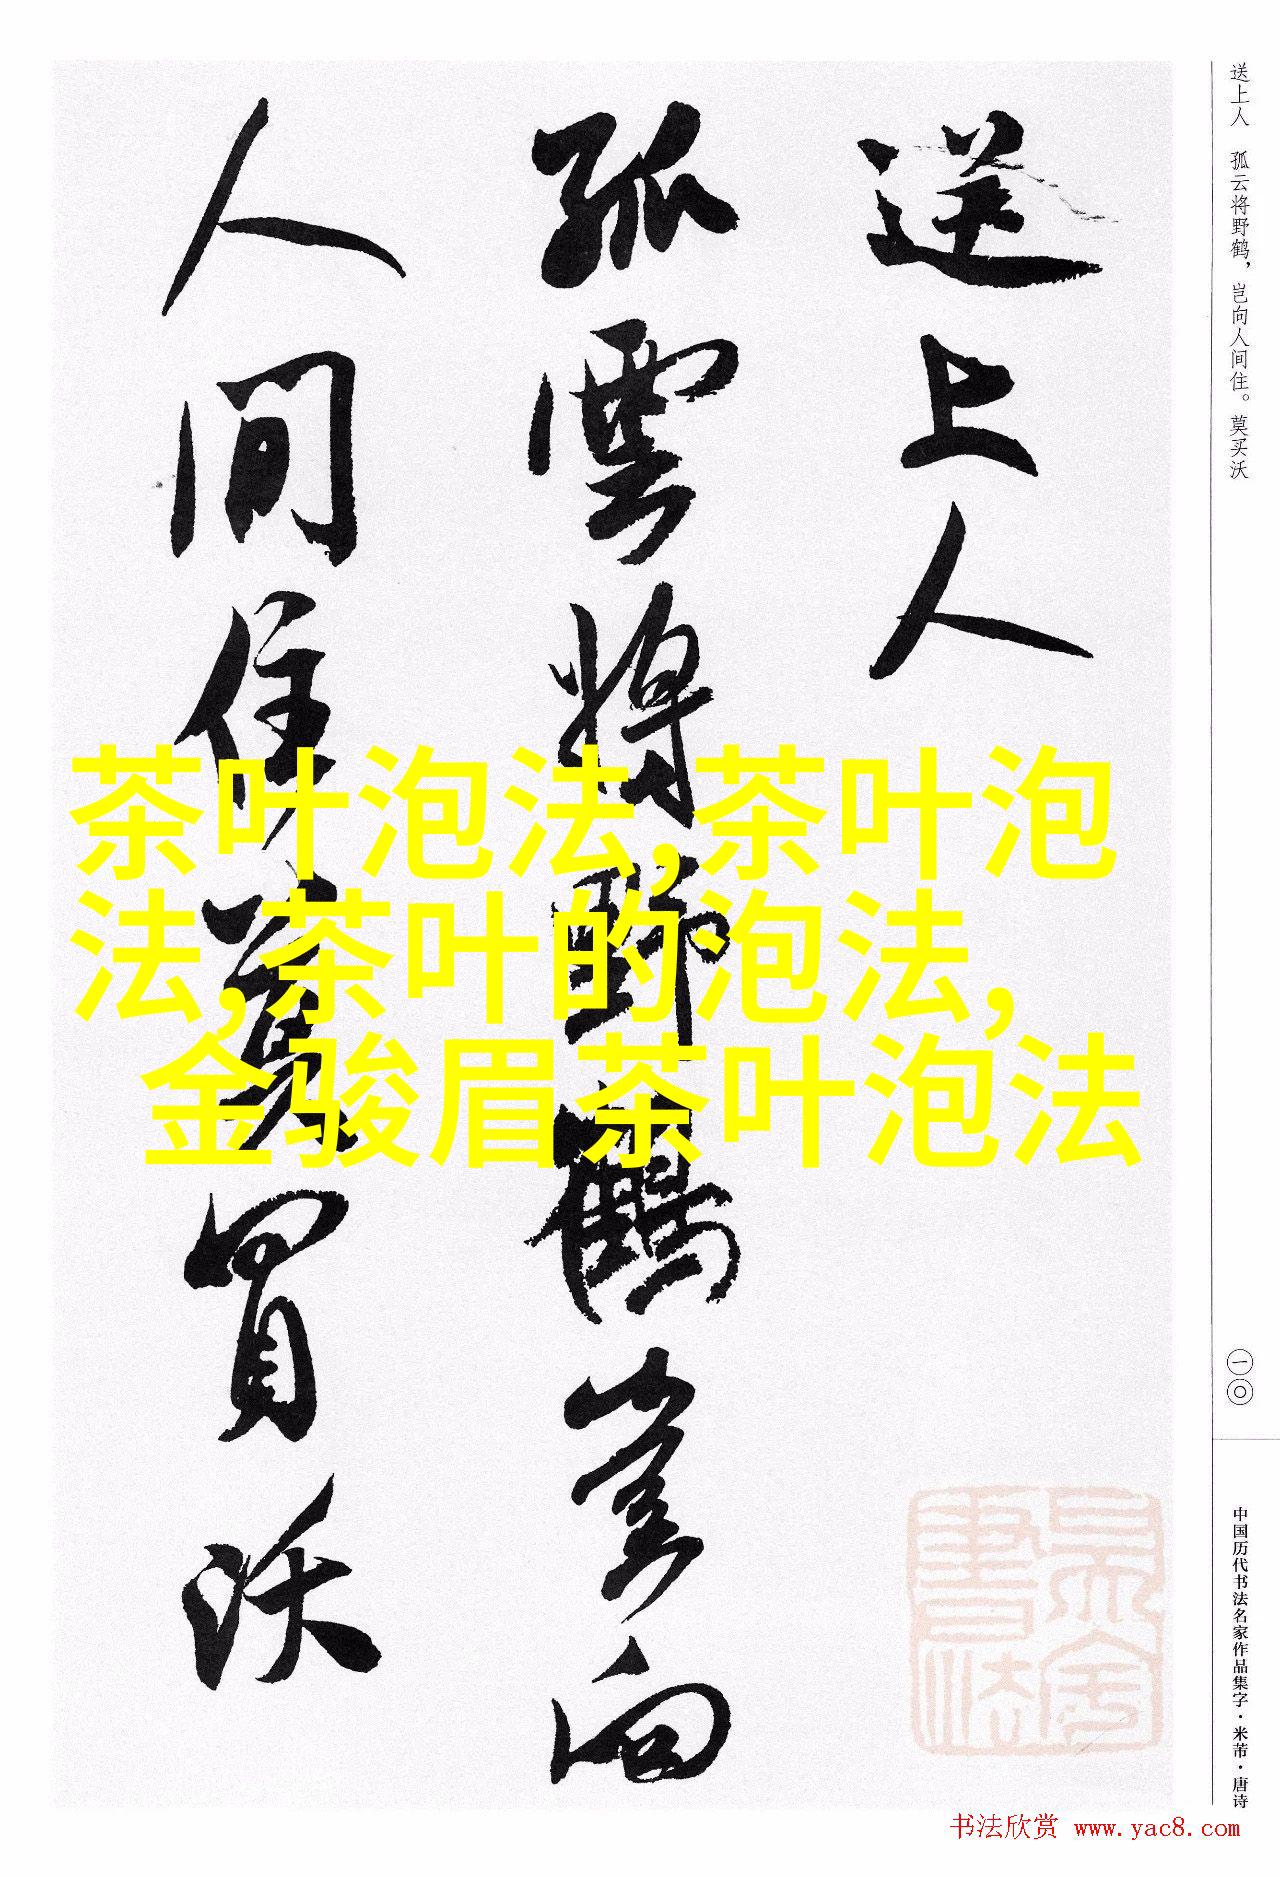 送上人　孤云将野鹤，岂向人间住。莫买沃
送上人
孤雲将野鶴豈向
人间住莫買沃
茶叶泡法,茶叶泡
法,茶叶的泡法,
金骏眉茶叶泡法
一〇
中国历代书法名家作品集字·米芾·唐诗
书法欣赏 www.yac8.com